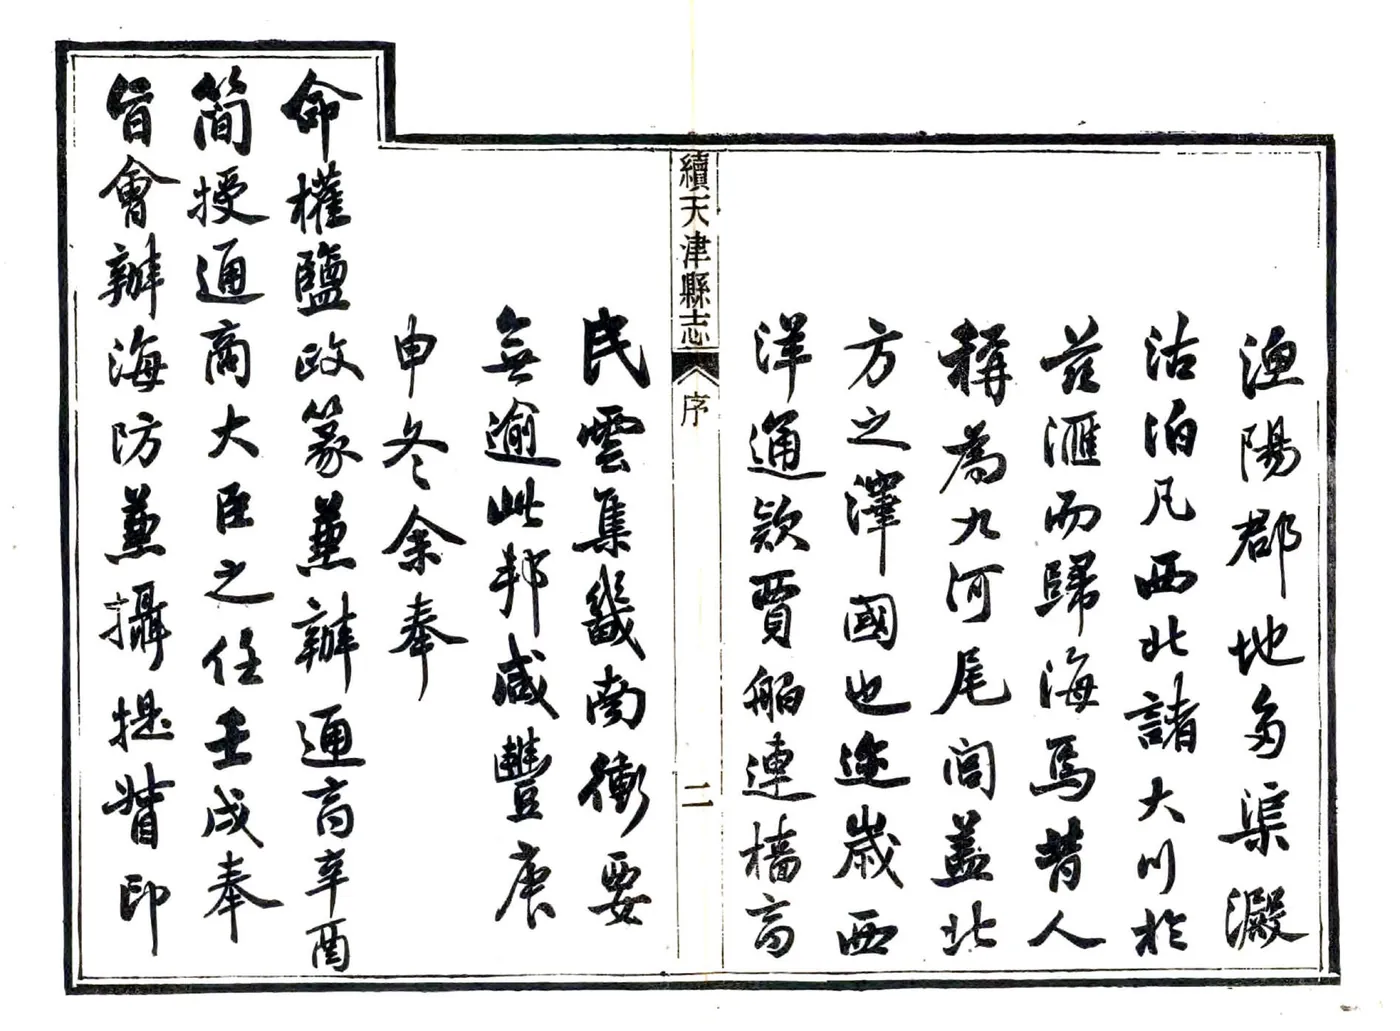 漁陽郡地多渠澱
沽泊凡西北諸大川於
茲滙而歸海焉昔人
稱為九河尾閭蓋北
方之澤國也迩歲西
洋通欵賈舶連檣商
續天津縣志
序
二
民雲集畿南衝要
無逾此邦咸豐庚
申冬余奉
命權鹽政篆兼辦通商辛酉
簡授通商大臣之任壬戌奉
旨會辦海防兼攝提督印